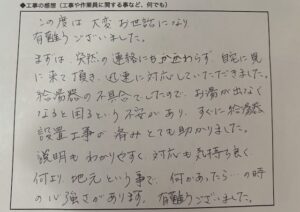 ●工事の感想（工事や作業員に関する事など、何でも）
この度は大変お世話になり
有難うございました。
まずは、突然の連絡にもかかわらず、自宅に見
に来て頂き、迅速に対応していただきました。
給湯器の不具合でしたので、お湯が出なく
なると困るという不安があり、すぐに給湯器
設置工事が済みとても助かりました。
説明もわかりやすく、対応も気持ち良く
何より、地元という事で、何かあった…の時
の心強さがあります。有難うございました。